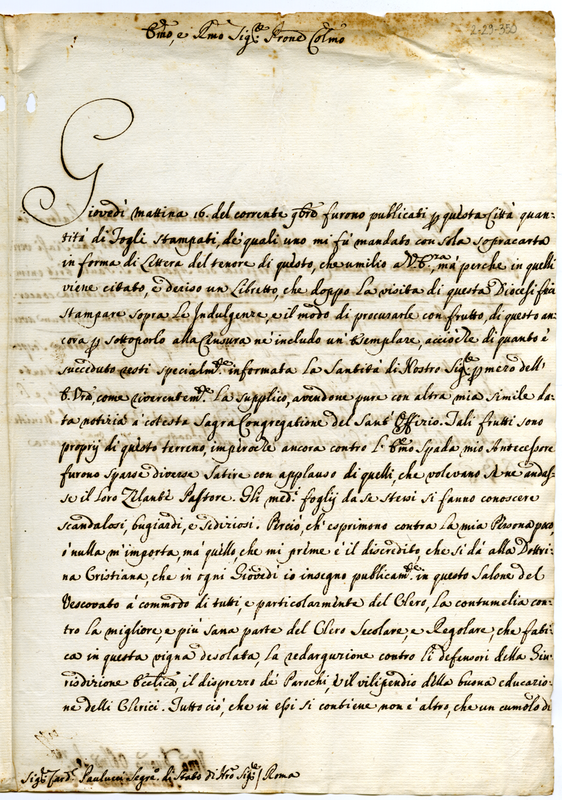 2-29-350
Emo, e Rmo Sigre. Prone Colmo
Giovedì mattina 16. del corrente 9bre furono publicati p questa Città quan-
tità di Fogli stampati, de quali uno mi fù mandato con sola sopracarta
in forma di Lettera del tenore di questo, che umilio a V. Emza, mà perche in quelli
viene citato, e deriso un Libretto, che doppo la visita di questa Diocesi feci
stampare sopra le Indulgenze, e il modo di procurarle con frutto, di questo an-
cora p sottoporlo alla Censura ne includo un Esemplare, acciòche di quanto è
succeduto resti specialmte. informata la Santità di Nostro Sigre p mezo dell'
E. Vra, come riverentemte. la supplico, avendone pure con altra mia simile da-
ta notizia à cotesta Sagra Congregatione del Sant' Offizio. Tali frutti sono
proprij di questo terreno, imperoche ancora contro l'Emo Spada mio Antecessore
furono sparse diverse Satire con applauso di quelli, che volevano se ne andas-
se il loro Zelante Pastore. Gli medi. foglij da se stessi si fanno conoscere
scandalosi, bugiardi, e sediziosi. Perciò, ch' esprimono contro la mia Persona poco,
ò nulla m'importa, ma quello, che mi preme è il discredito, che si dà alla Dottri-
na Cristiana, che in ogni Giovedì io insegno publicamte. in questo Salone del
Vescovato à commodo di tutti, e particolarmente del Clero, la contumelia con-
tro la migliore e più sana parte del Clero Secolare, e Regolare, che fati-
ca in questa vigna desolata, la redarguzione contro li defensori della Giu-
risdizione Ecclica, il disprezzo de Parochi, e il vilipendio della buona educazio-
ne delli Clerici. Tutto ciò, che in essi si contiene non è altro, che un cumolo di
Sigr. Card. Paulucci Segrio. di Stato di Nro Sigre / Roma